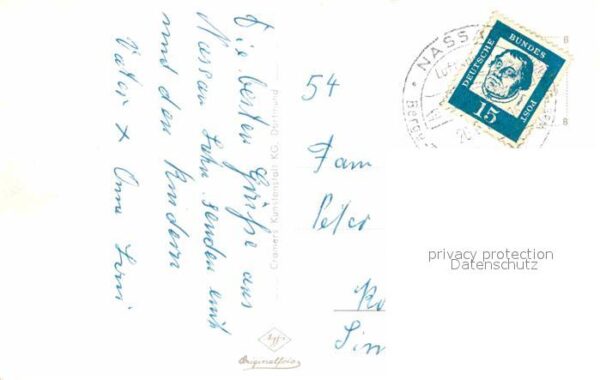 Die besten Grüße aus
Nassau Lahn senden euch
und den Kindern
Vater +
Cramers Kunstanstalt KG, Dortmund
Agfa
Originalfoto
54
Fam
Peter
NASSA
DEUTSCHE BUNDES POST
15
privacy protection
Datenschutz